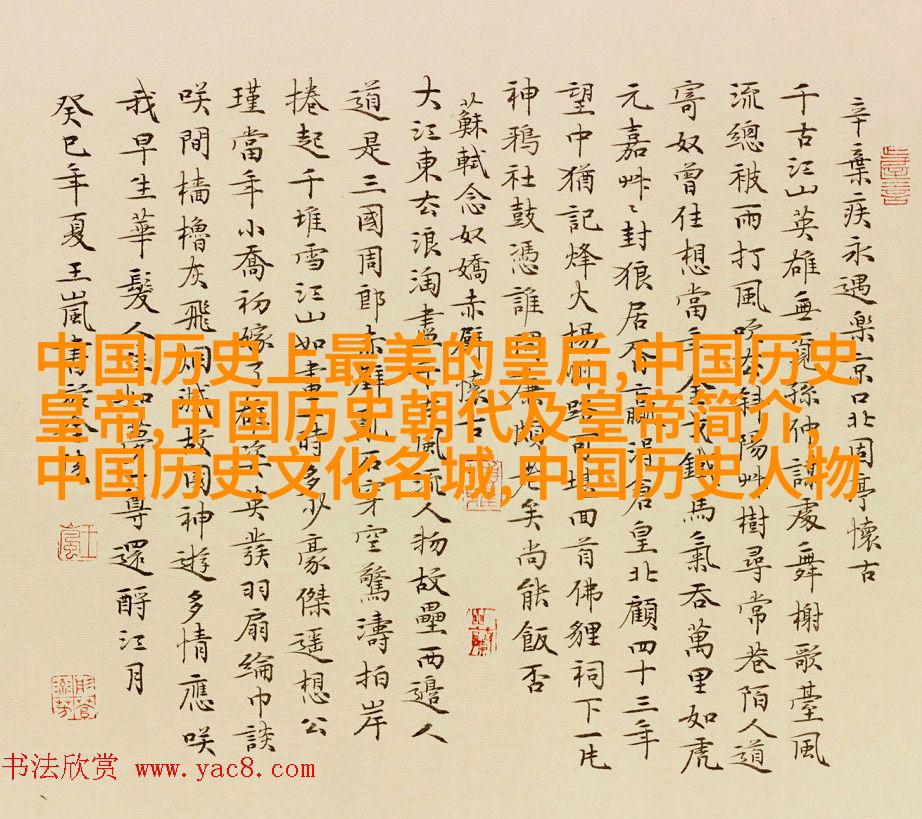 辛棄疾永遇樂京口北固亭懷古
千古江山英雄無覓孫仲謀處舞榭歌臺風
流總被雨打風吹去斜陽艸樹尋常巷陌人道
寄奴曾住想當年金戈鐵馬氣吞萬里如虎
元嘉艸〻封狼居胥贏得倉皇北顧四十三年
望中猶記烽火揚州路可堪回首佛貍祠下一片
神鴉社鼓憑誰問廉頗老矣尚能飯否
蘇軾念奴嬌赤壁懷古
大江東去浪淘盡千古風流人物故壘西邊人
道是三國周郎赤壁亂石穿空驚濤拍岸
捲起千堆雪江山如畫一時多少豪傑遥想公
瑾當年小喬初嫁了雄姿英發羽扇綸巾談
咲間檣櫓灰飛烟滅故國神遊多情應咲
我早生華髮人生如夢一尊還酹江月
癸巳年夏王嵐書
中国历史上最美的皇后,中国历史
皇帝,中国历史朝代及皇帝简介,
中国历史文化名城,中国历史人物
书法欣赏 www.yac8.com